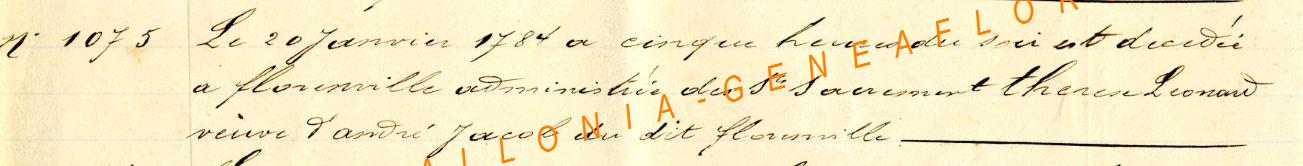 N° 1075 Le 20 Janvier 1784 a cinque heures du soir est decedée
a florenville administrée des Sts Sacrement therese Leonard
veuve d'andré Jacob du dit florenville